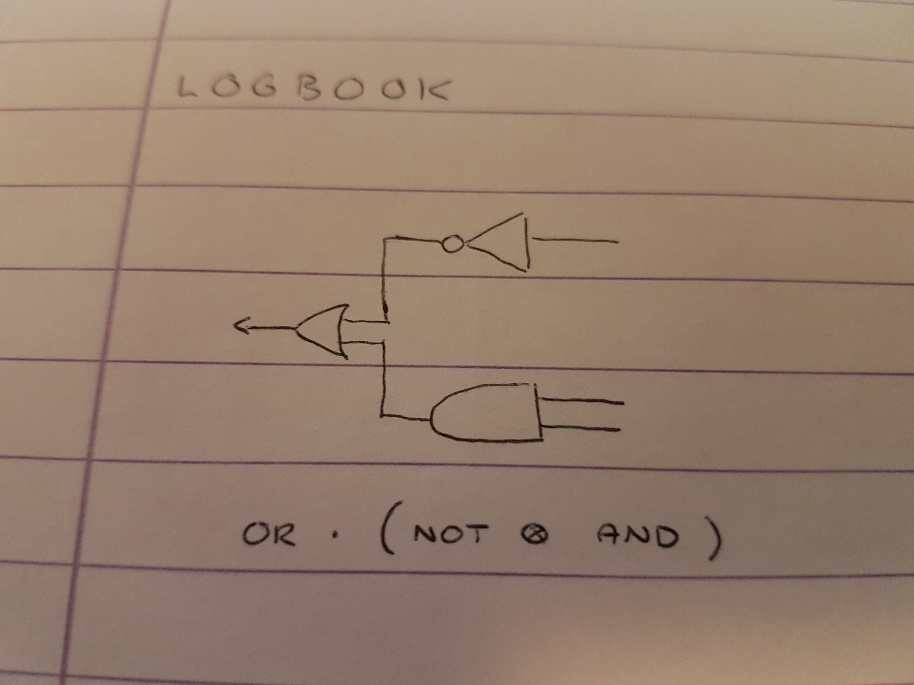 LOGBOOK
OR · (NOT ⊗ AND)